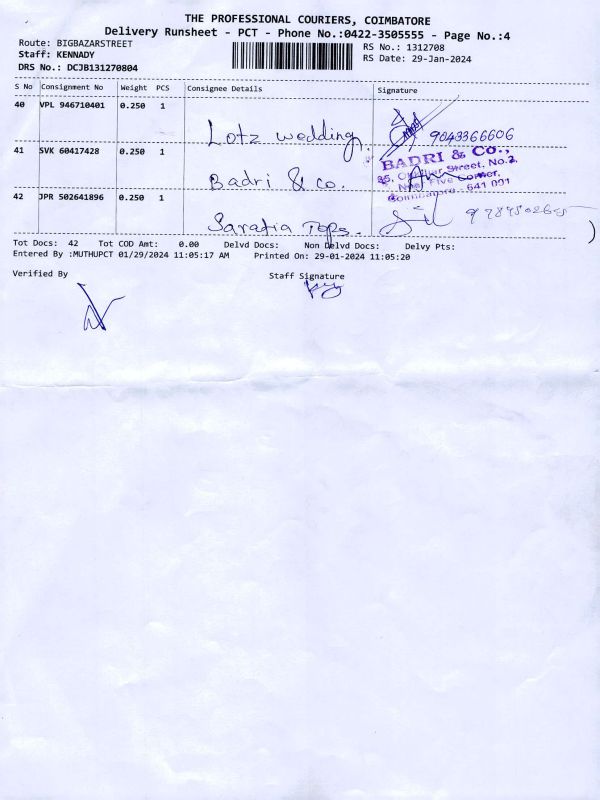 THE PROFESSIONAL COURIERS, COIMBATORE
Delivery Runsheet - PCT - Phone No.:0422-3505555 - Page No.:4
Route: BIGBAZARSTREET
RS No.: 1312708
Staff: KENNADY
RS Date: 29-Jan-2024
DRS No.: DCJB131270804
S No Consignment No Weight PCS Consignee Details Signature
40 VPL 946710401 0.250 1
Lotz wedding. 9043366606
41 SVK 60417428 0.250 1
BADRI & Co.,
Street, No.2,
Five Corner,
Coimbatore - 641 001
Badri & co.
42 JPR 502641896 0.250 1
Tops.
Tot Docs: 42 Tot COD Amt: 0.00 Delvd Docs: Non Delvd Docs: Delvy Pts:
Entered By :MUTHUPCT 01/29/2024 11:05:17 AM Printed On: 29-01-2024 11:05:20
Verified By Staff Signature